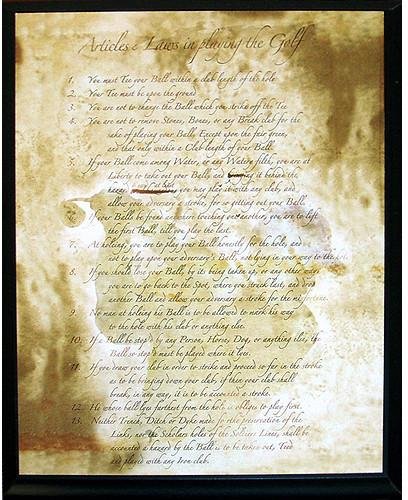 Articles & Laws in playing the Golf
1. You must Tee your Ball within a club length of the hole
2. Your Tee must be upon the ground
3. You are not to change the Ball which you strike off the Tee
4. You are not to remove Stones, Bones, or any Break club for the
sake of playing your Ball, Except upon the fair green,
and that only within a Club length of your Ball.
5. If your Ball come among Water, or any Watery filth, you are at
Liberty to take out your Ball, and it behind the
you may play it with any club, and
allow your adversary a stroke, for so getting out your Ball.
If your Balls be found anywhere touching one another, you are to lift
the first Ball, till you play the last.
7. At holeing, you are to play your Ball honestly for the hole, and
not to play upon your adversary's Ball, not lying in your way to the
8. If you should lose your Ball, by its being taken up, or any other way
you are to go back to the Spot, where you struck last, and drop
another Ball and allow your adversary a stroke for the misfortune.
9. No man at holeing his Ball is to be allowed to mark his way
to the hole with his club or anything else.
10. If a Ball be stop'd by any Person, Horse, Dog, or anything else, the
Ball so stop'd must be played where it lyes.
11. If you draw your club in order to strike and proceed so far in the stroke
as to be bringing down your club, if then your club shall
break, in any way, it is to be accounted a stroke.
12. He whose ball lyes farthest from the hole is obliged to play first.
13. Neither Trench, Ditch or Dyke made for the preservation of the
Links, nor the Scholars holes or the Soldiers Lines, shall be
accounted a hazard but the Ball is to be taken out, Teed
and played with any Iron club.